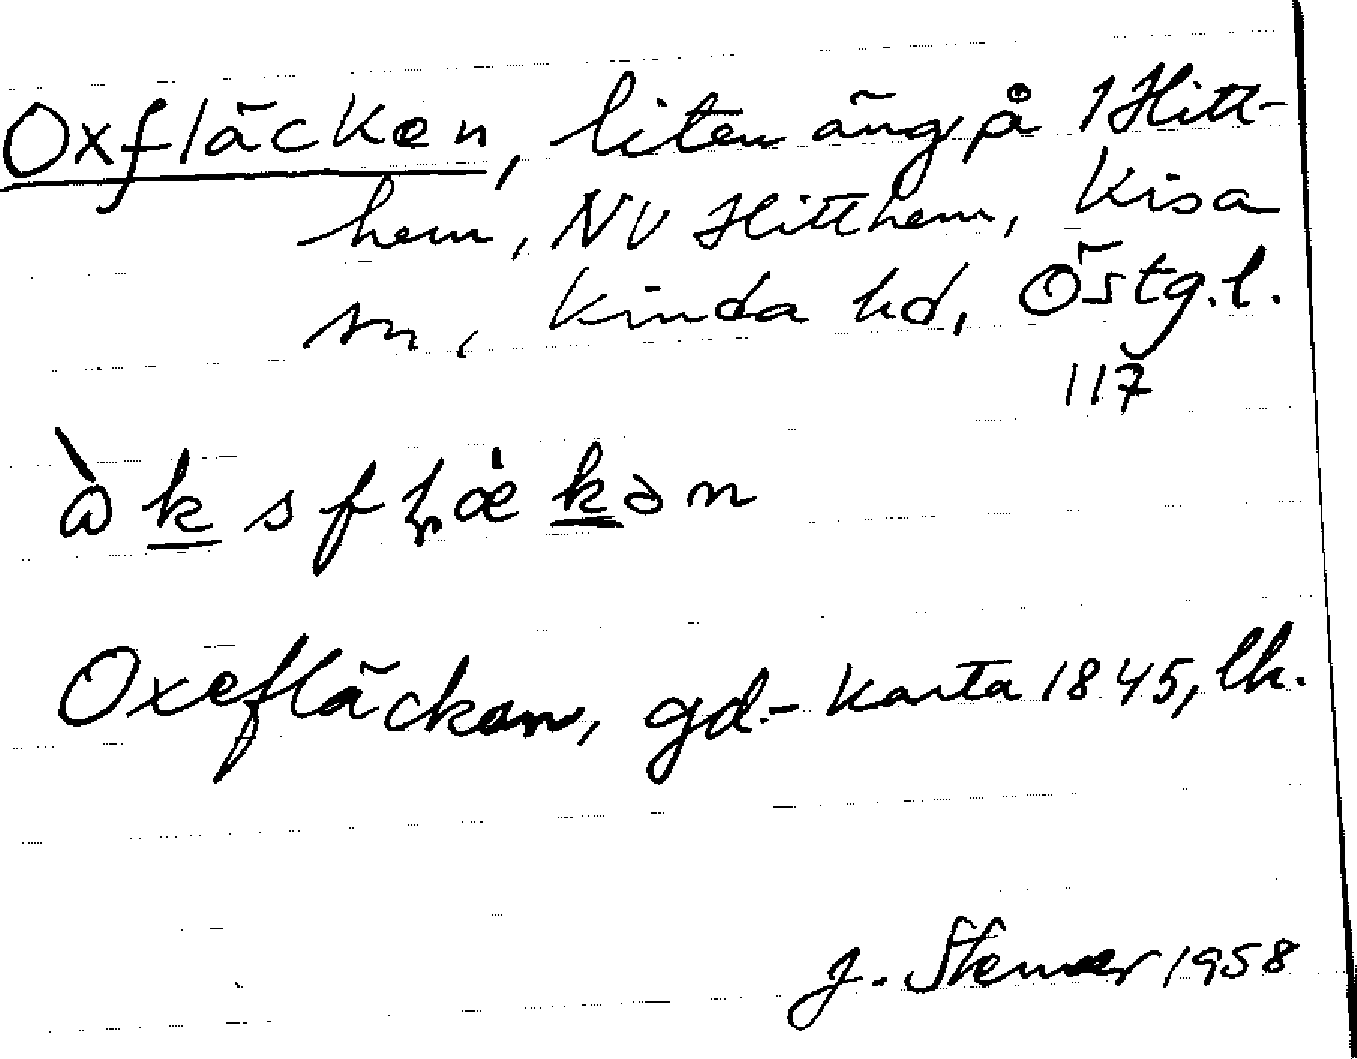 Oxfläcken, liten äng på 1 Hitt-
hem, NV Hitthem, Kisa
sn, Kinda hd, Östg.l.
117
Oxefläckan, gd.-karta 1845, lh.
1958